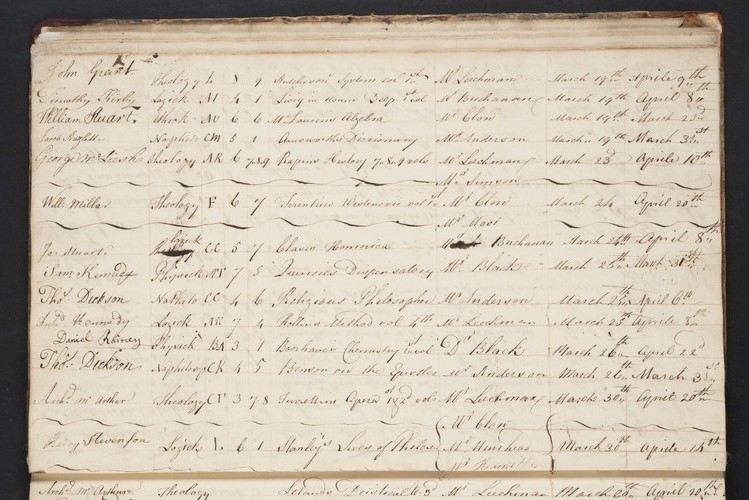 John Grant Theology L 8 9 Hutcheson's System vol 1st Mr Leechman March 19th Aprile 9th
Timothy Kirby Logick AI 4 1 Livy in Mr Buchanan March 19th April 8th
William Stuart. 6 6 McLaurins Algebra Mr Clow March 19th March 23d
CM 5 1 Ainsworths Dictionary Mr Anderson March 19th March 31st
George Theology AK 6 7 8 9 Rapins History 7 8 9 vols Mr Leechman March 23d Aprile 10th
Mr Simson
Will: Millar Theology F 6 7 Terentius Westenovii vol Mr Clow March 24 April 20th
Mr Moor
Logick
Jo: Stuart. CC 5 7 Clavis Homerica Buchanan March 24th April 8th
Saml Kennedy Physick AI 7 5 Quincies Dispensatory Mr Black March 25th March 31st
Thos Dickson CC 4 6 Religious Philosopher Mr Anderson March 25th April 6th
Kennedy Logick AK 7 4 Rollins Method vol 4th Mr Leechman March 25th Aprile
Daniel Physick BA 3 1 Boerhaave Chemistry Dr Black March 26th April 22d
Thos Dickson CK 4 5 Benson on the Epistles Mr Anderson March 26th March 31st
Archd McArthur Theology CI 3 7 8 Turrettins Opera 1 & 2d vols Mr Leechman March 30th April 20th
Mr Clow
Stevenson Logick L 6 1 Stanley's Lives of Philos Mr Muirhead March 30th Aprile 14th
Archd McArthur Theology Lelands Mr Leechman March April 20th